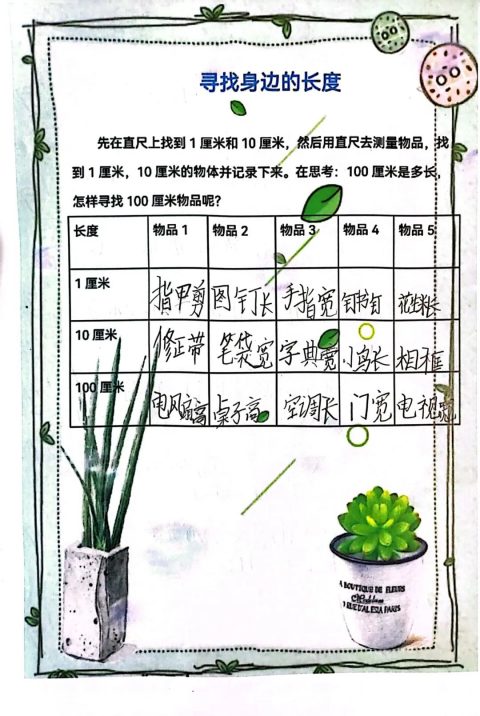 寻找身边的长度
先在直尺上找到1厘米和10厘米，然后用直尺去测量物品，找
到1厘米，10厘米的物体并记录下来。在思考：100厘米是多长，
怎样寻找100厘米物品呢？
长度 物品1 物品2 物品3 物品4 物品5
1厘米 指甲剪 图钉长 手指宽 钉书钉 花生米长
10厘米 修正带 笔袋宽 字典宽 小鸟长 相框
100厘米 电风扇高 桌子高 空调长 门宽 电视宽
A BOUTIQUE DE FLEURS
1 RUE D'ALESIA PARIS